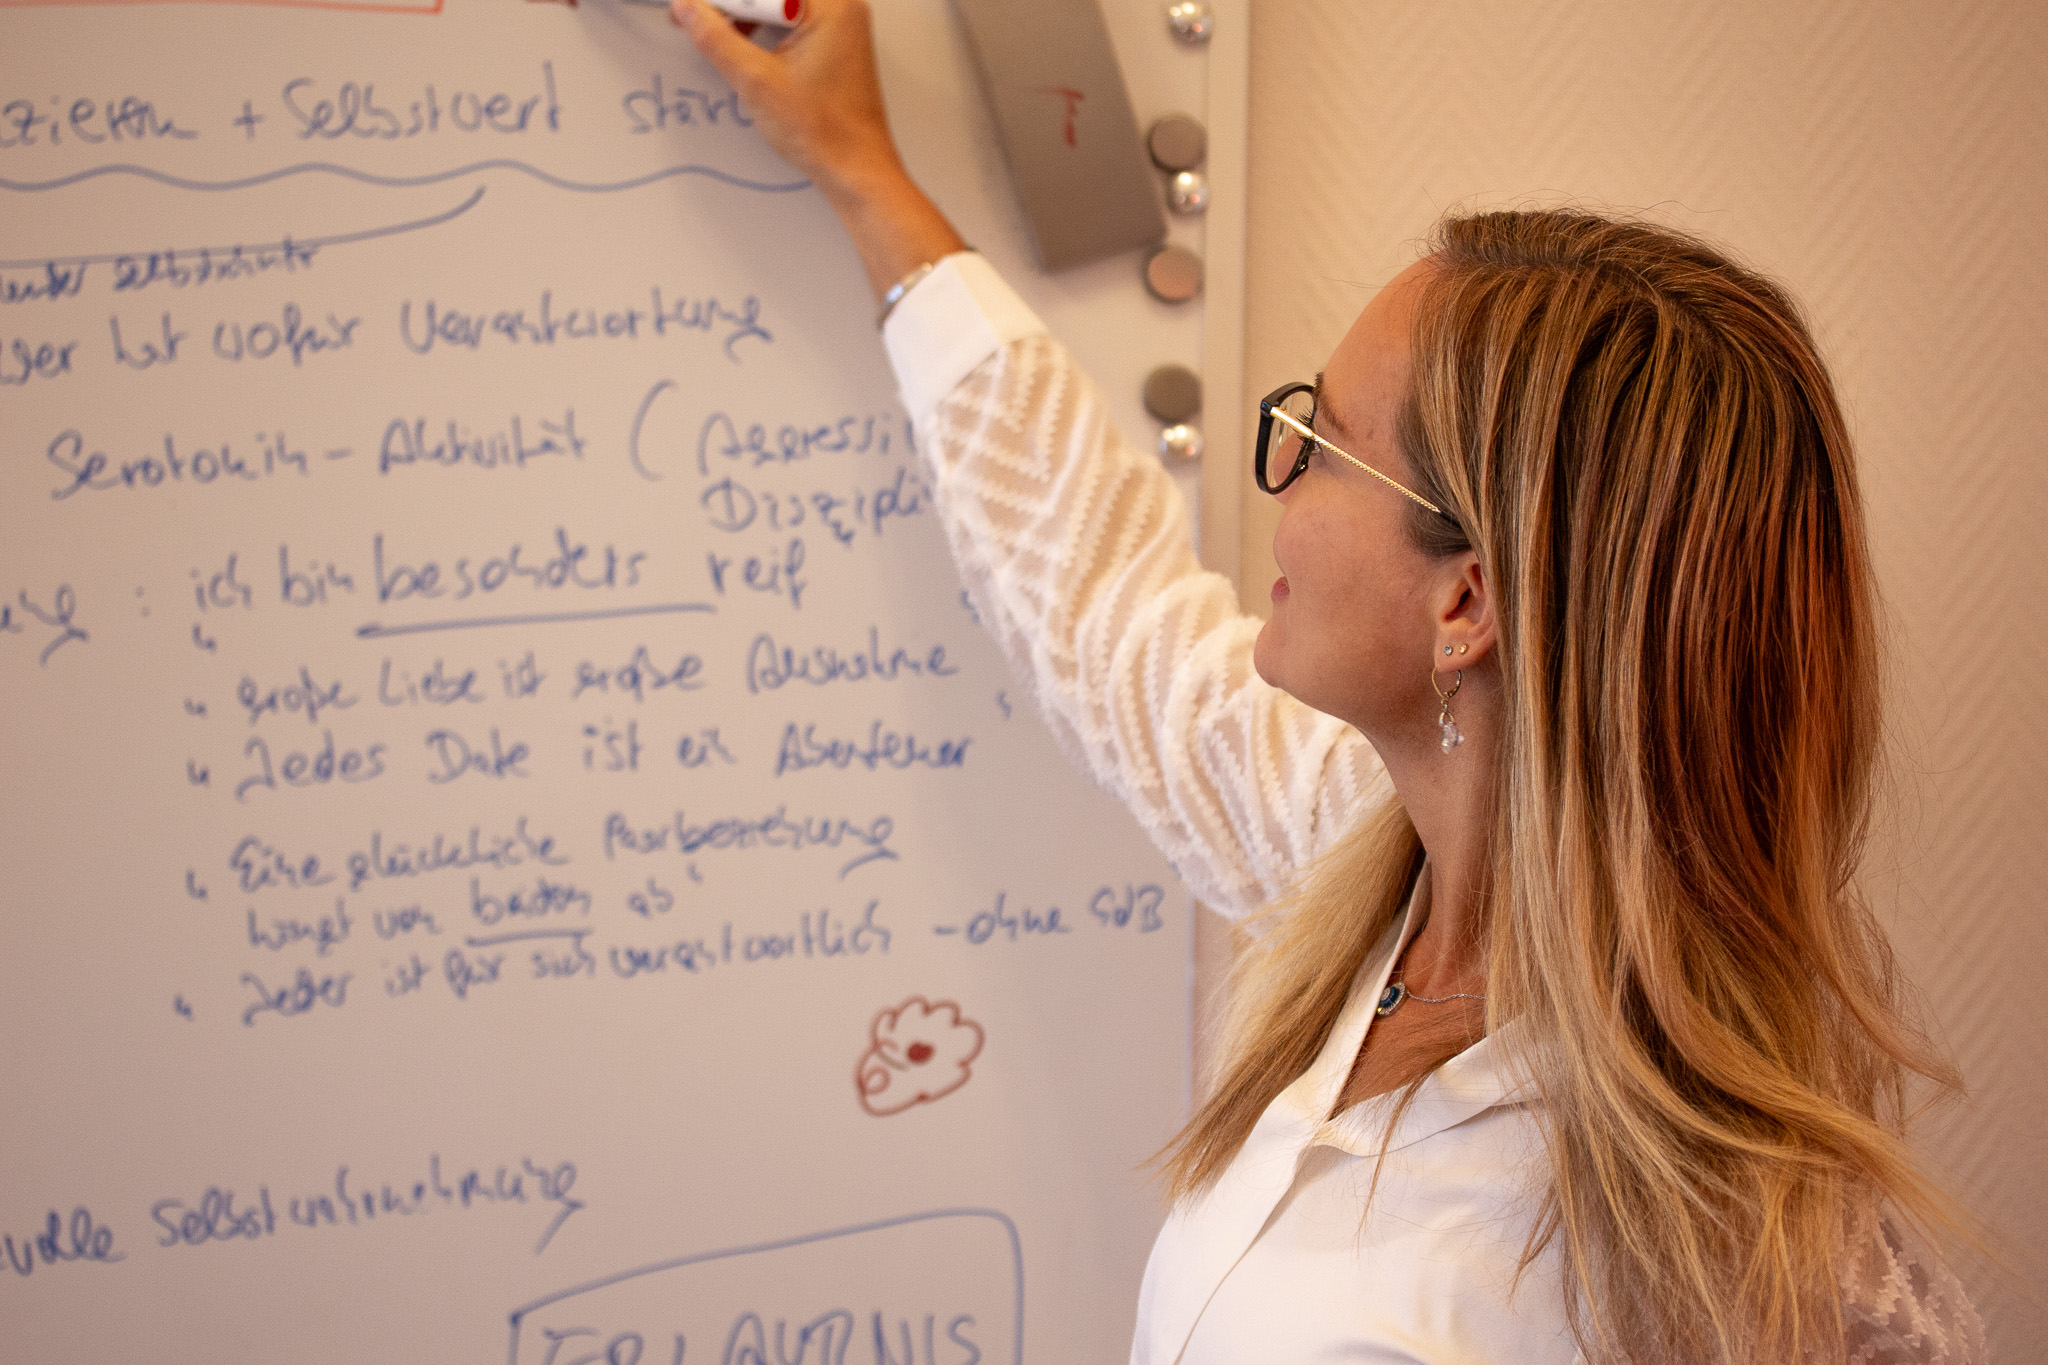 + Selbstwert stärk
wer hat wofür Verantwortung
Serotonin - Aktivität ( Aggressi
Diszipli
: "ich bin besonders reif
" große Liebe ist große Ausnahme "
" Jedes Date ist ein Abenteuer
" Eine glückliche Paarbeziehung
hängt von beiden ab "
" Jeder ist für sich verantwortlich - ohne SdB
evolle Selbstwahrnehmung
ERLAUBNIS